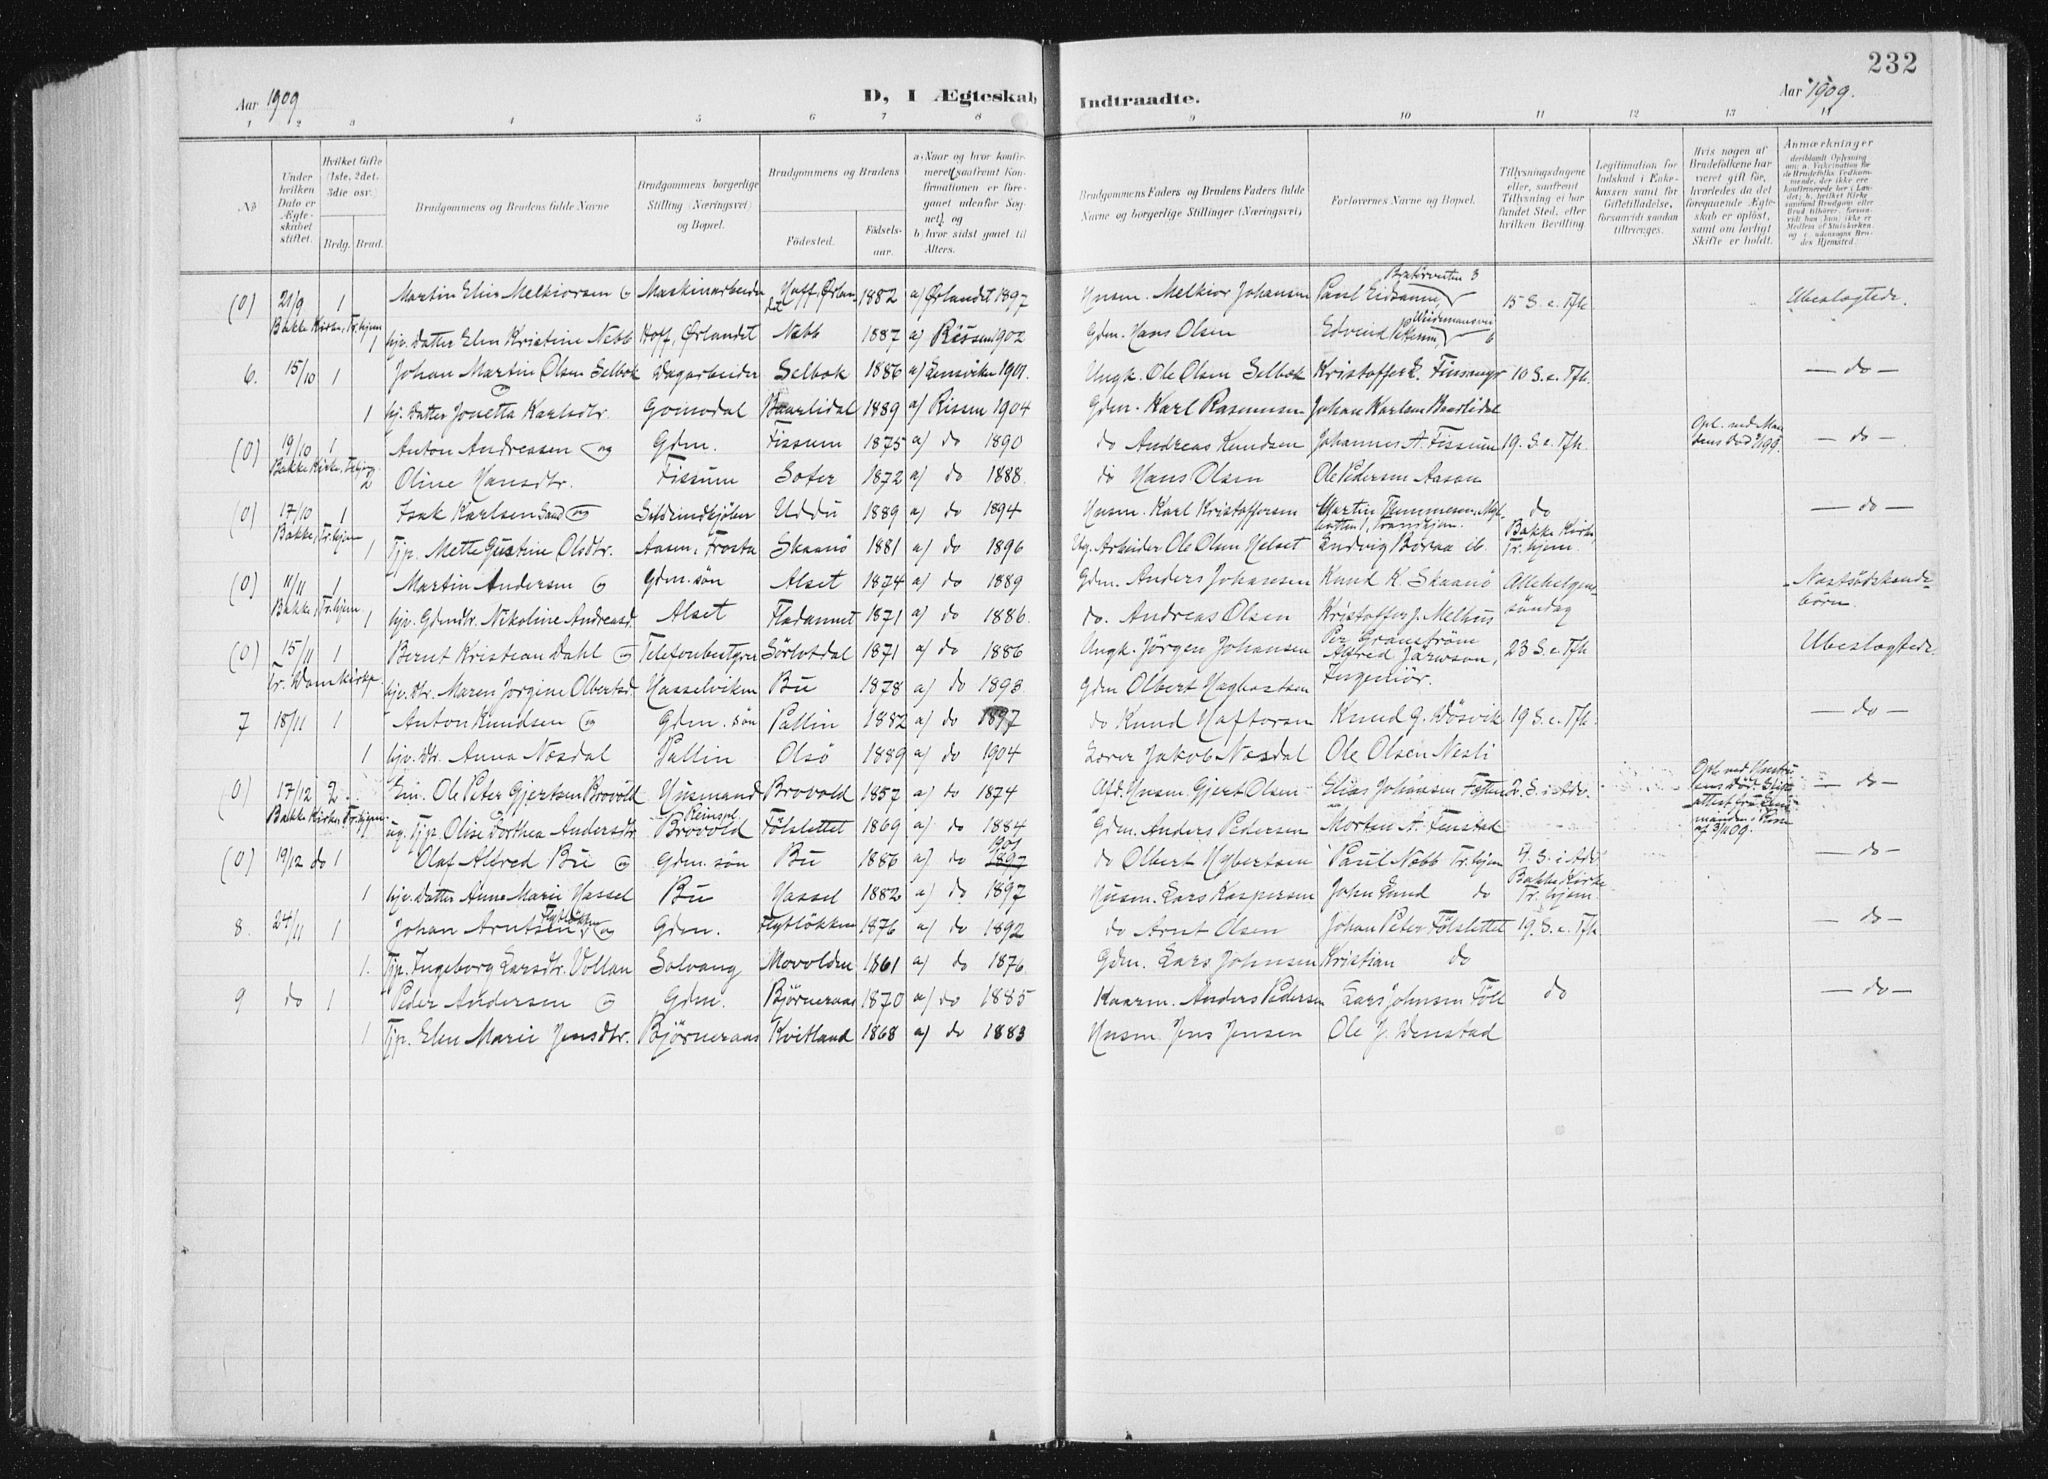 232
Aar 1909
D, I Ægteskab,
Indtraadte.
Aar 1909.
1 2 3 4 5 6 7 8 9 10 11 12 13 14
No
Under hvilken Dato er Ægteskabet stiftet.
Hvilket Gifte (1ste, 2det, 3die osv.)
Brdg. Brud.
Brudgommens og Brudens fulde Navne
Brudgommens borgerlige Stilling (Næringsvei) og Bopæl.
Brudgommens og Brudens
Fødested. Fødselsaar.
a, Naar og hvor konfirmeret (saafremt Konfirmationen er foregaaet udenfor Sognet), og b, hvor sidst gaaet til Alters.
Brudgommens Faders og Brudens Faders fulde Navne og borgerlige Stillinger (Næringsvei).
Forlovernes Navne og Bopæl.
Tillysningsdagene eller, saafremt Tillysning ei har fundet Sted, efter hvilken Bevilling.
Legitimation for Indskud i Enkekassen samt for Giftetilladelse, forsaavidt saadan tiltrænges.
Hvis nogen af Brudefolkene har været gift før, hvorledes da det foregaaende Ægteskab er opløst, samt om lovligt Skifte er holdt.
Anmærkninger
(0) 21/9 1 Martin Elin Melkiorsen og Maskinarbeider Hoff, Ørlandet 1882 a) Ørlandet 1897 Husm. Melkior Johansen Paul Eidsaune 15 S. e. Tfh Ubeslægtede.
Bakke Kirke, Tr.hjem 1 hjv. Datter Elen Kristine Nebb Hoff, Ørlandet Nebb 1887 a) Rissen 1902 Gdm. Hans Olsen Edvind Pettersen 6
6. 15/10 1 Johan Martin Olsen Selbek Dagarbeider Selbek 1886 a) Lensviken 1901. Ungk. Ole Olsen Selbek Kristoffer E. Fissanger 10 S. e. Tfh. — do —
1 hj. Datter Jonetta Karlsdtr. Gomodal Baarlidal 1889 a) Rissen 1904 Gdm. Karl Rasmussen Johan Karlsen Baarlidal
(0) 19/10 1 Anton Andreasen og Gdm. Fissum 1875 a) do 1890 do Andreas Knudsen Johannes A. Fissum 19. S. e. Tfh. Opl. ved Mandens Död — do —
Bakke Kirke, Trhjem 2 Oline Hansdtr. Fissum Soter 1872 a) do 1888. do Hans Olsen Ole Pedersen Aasan
(0) 17/10 1 Isak Karlsen Sand og Uddu 1889 a) do 1894 Husm. Karl Kristoffersen Martin do — do —
Bakke, Tr.hjem 1 Tjp. Mette Gustine Olsdtr. Aasen, Frosta Skaanö 1881 a) do 1896 Ug. Arbeider Ole Olsen Helset Ludvig Boraa ib. Bakke Kirke Tr.hjem.
(0) 11/11 1 Martin Andersen og Gdm. søn Alset 1874 a) do 1889 Gdm. Anders Johansen Knud K. Skaanö Allehelgensöndag Næstsödskendebörn.
Bakke, Tr.hjem 1 hjv. Gdmdtr. Nikoline Andreasd. Alset Fladamnet 1871 a) do 1886. do. Andreas Olsen Kristoffer J. Melhus
(0) 15/11 1 Bernt Kristian Dahl og Telefonbestyrer Sörlotdal 1871 a) do 1886 Ungk. Jörgen Johansen Per Granström Alfred Järwson, 23 S. e. Tfh Ubeslægtede.
Tr. Domkirke. hjv. dtr. Maren Jorgine Olbertsd. Hasselviken Bu 1878 a) do 1893. Gdm Olbert Hagbartsen Ingeniör.
7 18/11 1 Anton Knudsen og Gdm. søn Pallin 1882 a) do 1897 do Knud Haftorsen Knud G. Dösvik 19 S. e. Tfh. — do —
1 hjv. dtr. Anna Næsdal Pallin Olsö 1889 a) do 1904 Lærer Jakob Næsdal Ole Olsen Nesli
(0) 17/12 2 Em. Ole Peter Gjertsen Brovold Husmand Brovold 1857 a) do 1874 Afd. Husm. Gjert Olsen Elias Johansen Foften 2. S. i Adv. — do —
Bakke Kirke, Tr.hjem ug. Tjp. Olise Dorthea Andersdtr. Reinspl. Brovold Fölslettet 1869 a) do 1884 Gdm. Anders Pedersen Morten A. Fenstad
(0) 19/12 do 1 Olaf Alfred Bu og Gdm. søn Bu 1886 a) do 1901 1897 do Olbert Hybertsen Paul Nebb Tr.hjem 4. S. i Adv — do —
1 hjv. Datter Anne Marie Hassel Bu Hassel 1882 a) do 1897 Husm. Lars Kaspersen John Lund do Bakke Kirke Tr.hjem
8. 24/11 1 Johan Arntsen Flytløkken og Gdm. Flytløkken 1876 a) do 1892 do Arnt Olsen Johan Peter Fölslettet 19. S. e. Tfh. — do —
1. Tjp. Ingeborg Larsdtr. Vollan Solvang Movolden 1861 a) do 1876 Gdm. Lars Johnsen Kristian do
9 do 1 Peder Andersen og Gdm. Björneraas 1870 a) do 1885 Kaarm. Anders Pedersen Lars Johnsen Föll do — do —
1 Tjp. Elen Marie Jensdtr. Björneraas Kvitland 1868 a) do 1883 Husm. Jens Jensen Ole J. Denstad